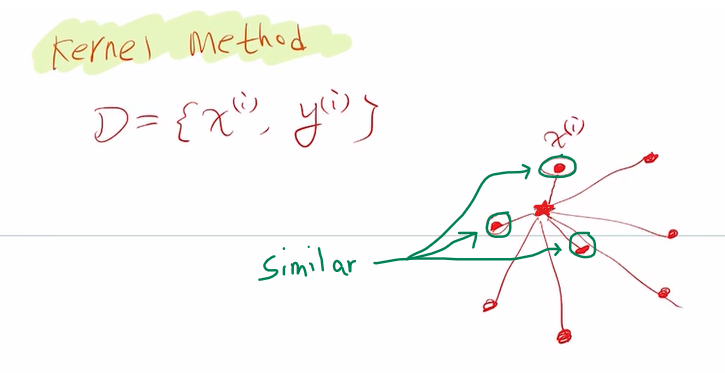 Kernel Method
D = {x^(i), y^(i)}
x^(i)
Similar